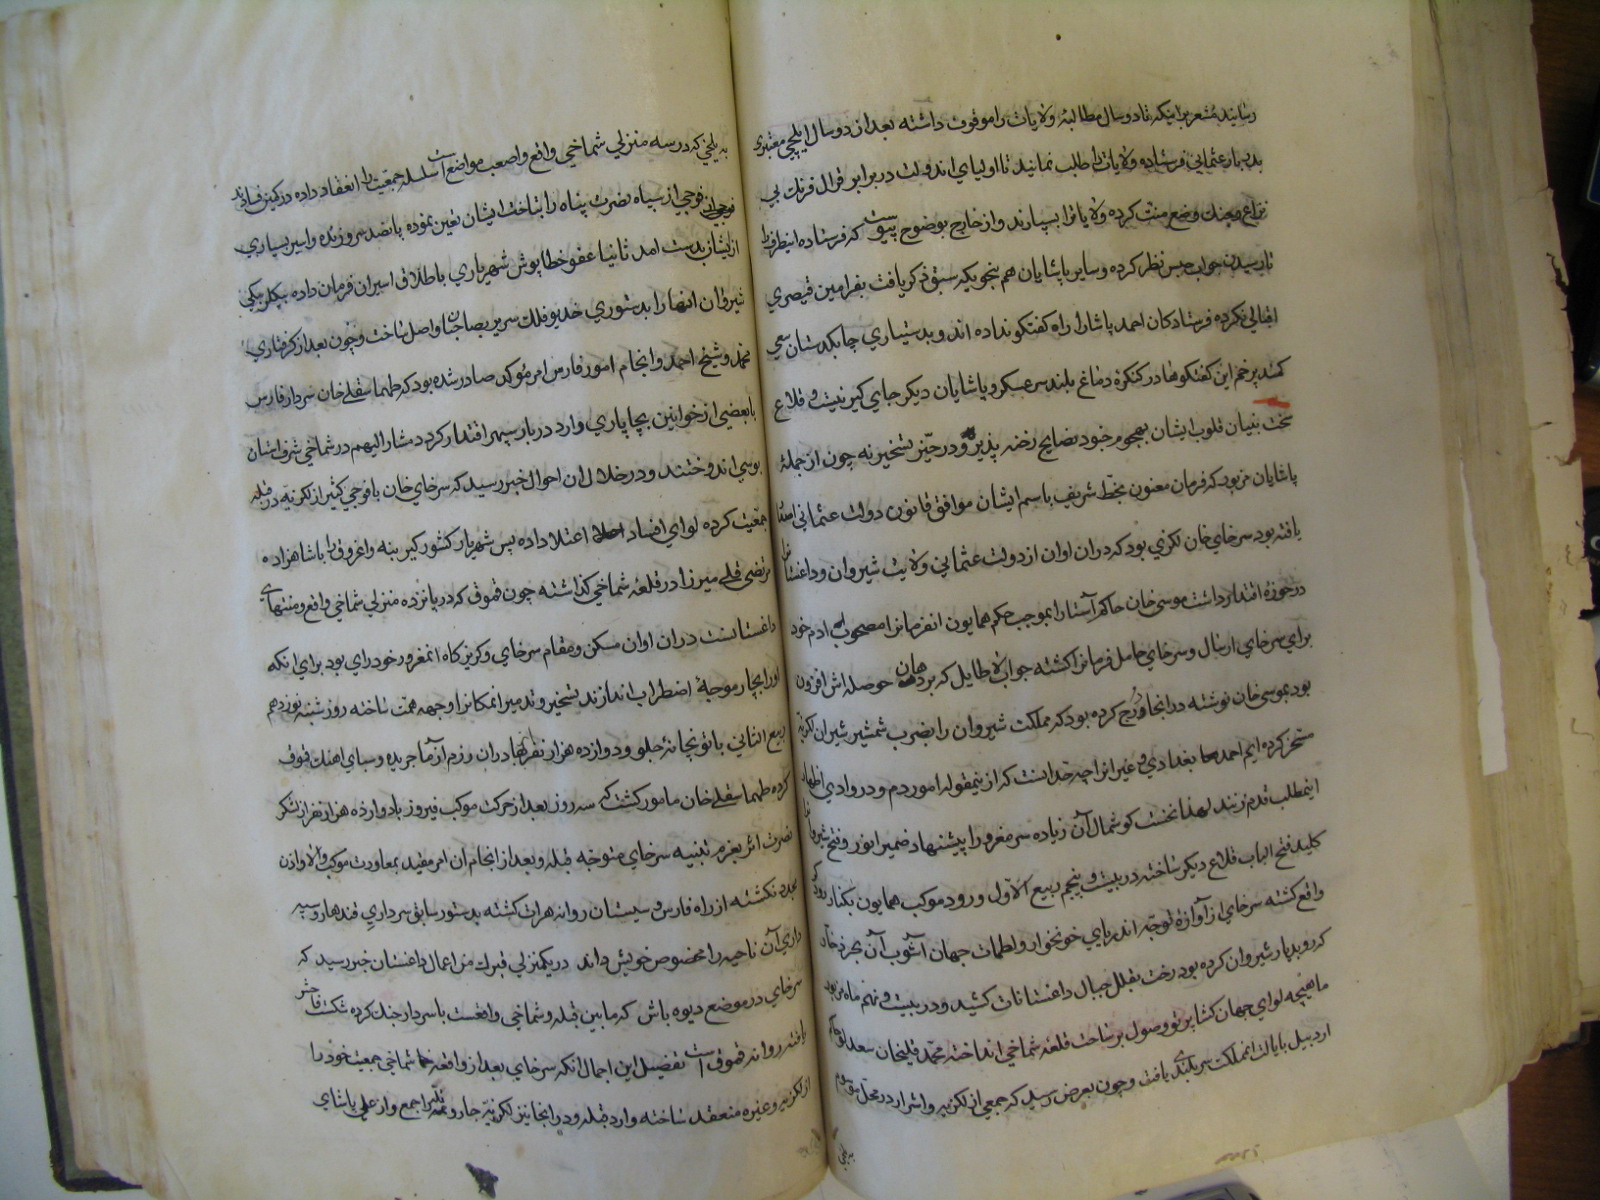 رسانید مشعر بر اینکه تا دو سال مطالبهٔ ولایات را موقوف داشته بعد از دو سال ایلچی معتبری
بدربار عثمانی فرستاده ولایات را طلب نمانید تا اولیای اندولت در برابر قرال فرنك بی
نزاع و جنك وضع منت کرده ولایاترا بسپارند و از خارج بوضوح پیوست که فرستاده اینطرف را
تا رسیدن جواب حبس نظر کرده و سایر پاشایان هم بنحویکه سبق ذکر یافت بفرامین قیصری
اعتنائی نکرده فرستادکان احمد پاشا را راه کفتکو نداده اند و بدستیاری چابکدستان سعی
کمند پر خم این کفتکوها در کنکرهٔ دماغ بلند سرعسکر و پاشایان دیکر جای کیر نیست و قلاع
سخت بنیان قلوب ایشان بهجوم خود نصایح رخنه پذیر و در حیّز تسخیر نه چون از جملهٔ
پاشایان مزبور که فرمان معنون بخط شریف باسم ایشان موافق قانون دولت عثمانی اصدار
یافته بود سرخای خان لکزی بود که دران اوان از دولت عثمانی ولایت شیروان و داغستان
در حوزهٔ اقتدار داشت موسی خان حاکم آستارا بموجب حکم همایون انفرمانرا مصحوب ادم خود
برای سرخای ارسال و سرخای حامل فرمانرا کشته جواب لاطایل که بر دهان حوصله اش افزون
بود بموسی خان نوشته در انجا درج کرده بود که مملکت شیروان را بضرب شمشیر شیران لکزیه
مسخر کرده ایم احمد بغدادی و غیر انرا چه حد است که از ینمقوله امور دم و در وادی اظهار
اینمطلب قدم زنند لهذا نخست کوشمال آن زیاده سر مغرور را پیشنهاد ضمیر انور و فتح شیروان
کلید فتح الباب قلاع دیکر ساخته در بیست و پنجم ربیع الاوّل ورود موکب همایون بکنار رود کر
واقع کشته سرخای از آوازهٔ توجّه اندریای خونخوار و لطمات جهان آشوب آن بحر ذخار
که رو بدیار شیروان کرده بود رخت بقلل جبال داغستانات کشید و در بیست و نهم ماه مزبور
ماهیچه لوای جهان کشا پرتو وصول بر ساحت قلعه شماخی انداخته محمّد قلیخان سعدلو حاکم
اردبیل بایالت انمملکت سربلندی یافت و چون بعرض رسید که جمعی از لکزیه و اشرار در محل موسوم
به یلجی
به یلجی که در سه منزلی شماخی واقع و اصعب مواضع است سلسله جمعیت را انعقاد داده در کمین فسادند
فوجی از سپاه نصرت پناه را بتاخت ایشان تعین نموده پانصد سر و زنده و اسیر بسیاری
از ایشان بدست امد ثانیا عفو خطاپوش شهریاری باطلاق اسیران فرمان داده بیکلربیکی
شیروان انها را بدستوری خدیو فلك سریر بصاحبان واصل ساخت و چون بعد از کرفتاری
محمد و شیخ احمد و انجام امور فارس امر مؤکد صادر شده بود که طهماسقلی خان سردار فارس
با بعضی از خوانین بچاپاری وارد دربار سپهر اقتدار کردد مشار الیهم در شماخی شرف استان
بوسی اندوختند و در خلال ان احوال خبر رسید که سرخای خان با فوجی کثیر از لکزیه در قبله
جمعیت کرده لوای افساد اعتلا داده پس شهریار کشور کیر بنه و اغروق را با شاهزاده
مرتضی قلی میرزا در قلعه شماخی کذاشته چون قموق که در پانزده منزلی شماخی واقع و منتهای
داغستانست دران اوان مسکن و مقام سرخای و کریزکاه انمغرور خود رای بود برای انکه
او را بچار موجهٔ اضطراب اندازند تسخیر و تدمیر انمکانرا وجهه همّت ساخته روز شنبه نوزدهم
ربیع الثانی با توپخانهٔ جلو و دوازده هزار نفر بهادران رزم آزما جریده و سبای اهنك قموق
کرده طهماسقلی خان مامور کشت که سه روز بعد از حرکت موکب فیروز با دوازده هزار نفر از لشکر
نصرت اثر بعزم تنبیه سرخای متوجه قبله و بعد از انجام ان امر مقید بمعاودت موکب والا و اذن
مجدد نکشته از راه فارس و سیستان روانه هرات کشته بدستور سابق سرداری قندهار و سپه
داری آن ناحیه را مخصوص خویش داند در یکمنزلی قبرات من اعمال داغستان خبر رسید که
سرخای در موضع دیوه باش که مابین قبله و شماخی واقعست با سردار جنك کرده شکست فاحش
یافته روانه قموق است تفصیل این اجمال انکه سرخای بعد از واقعه شماخی جمعیت خود را
از لکزیه و غیره منعقد ساخته وارد قبله و در انجا نیز لکزیّه جار و تله را جمع و از علی پاشای